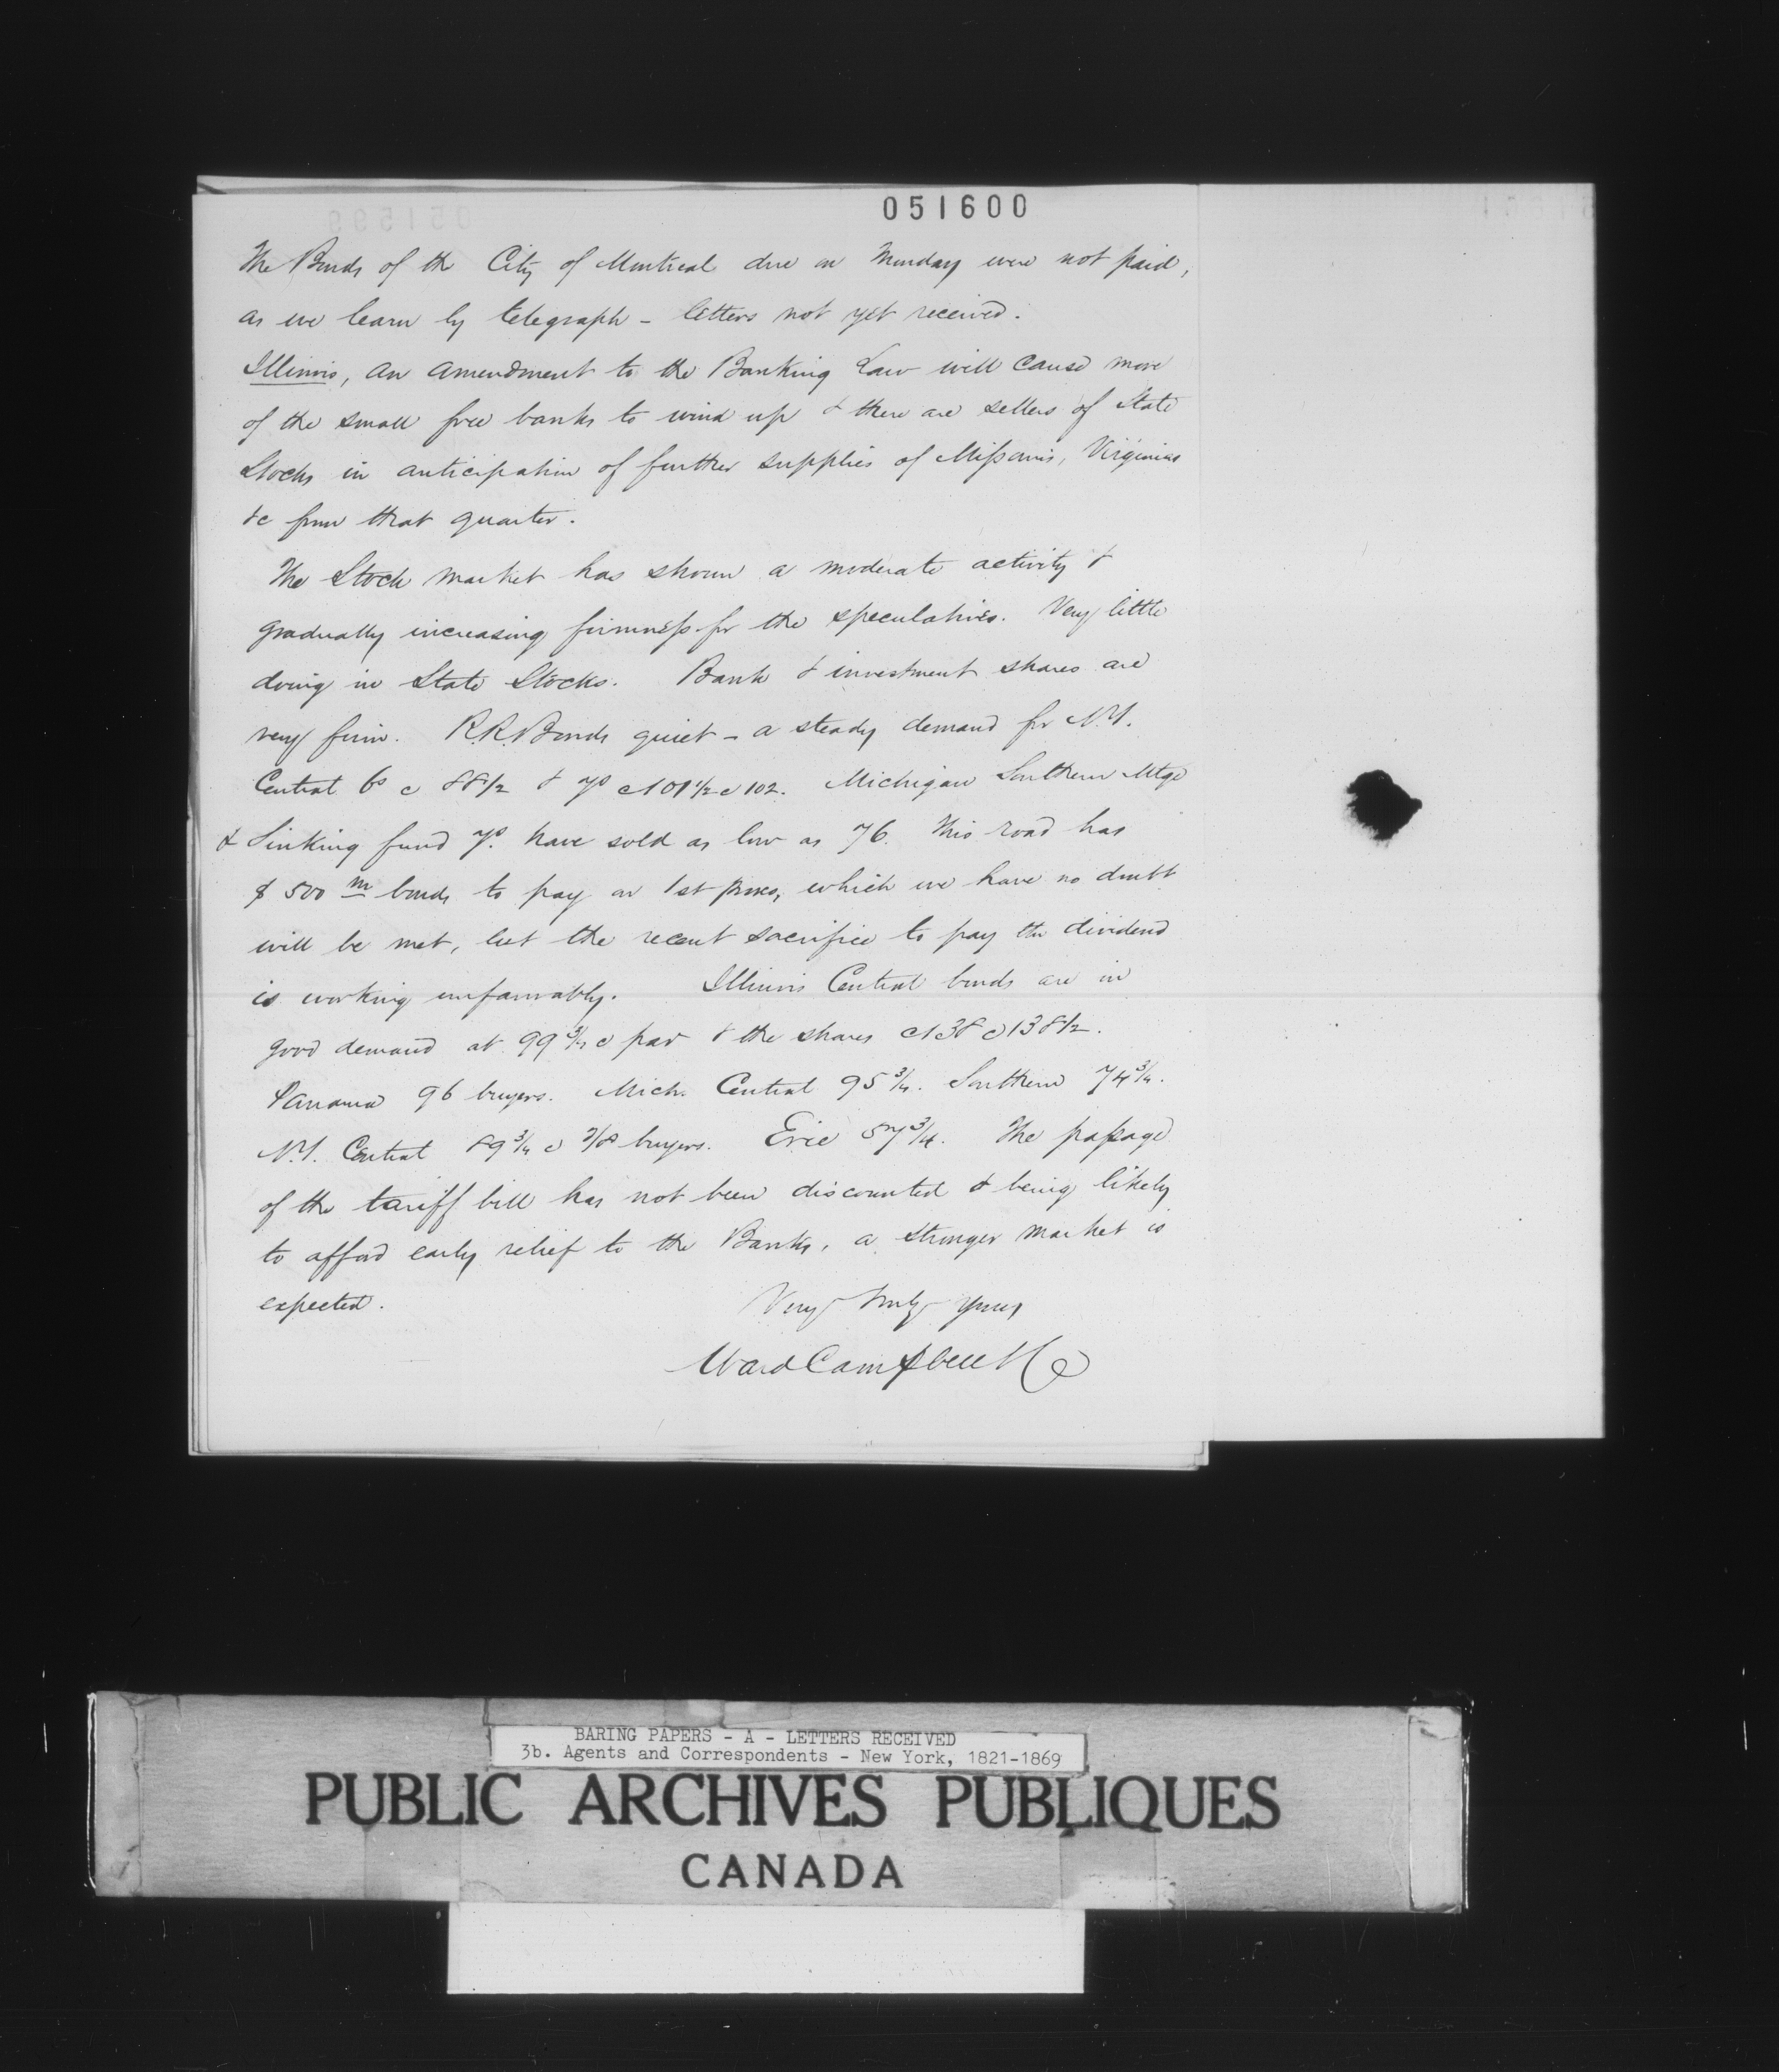 051600
The Bonds of the City of Montreal due on Monday were not paid,
as we learn by telegraph - letters not yet received.
Illinois, an amendment to the Banking Law will cause more
of the small free banks to wind up & there are sellers of State
Stocks in anticipation of further supplies of Missouris, Virginias
&c from that quarter.
The Stock market has shown a moderate activity &
gradually increasing firmness for the speculatives. Very little
doing in State Stocks. Bank & investment shares are
very firm. R.R. Bonds quiet - a steady demand for N.Y.
Central 6s @ 88 1/2 & 7s @ 101 1/2 @ 102. Michigan Southern Mtge
& Sinking fund 7s. have sold as low as 76. This road has
$ 500 m bonds to pay on 1st which we have no doubt
will be met, but the recent sacrifice to pay the dividend
is working unfavorably. Illinois Central bonds are in
good demand at 99 3/4 @ par & the shares @ 138 @ 138 1/2.
Panama 96 buyers. Mich. Central 95 3/4. Southern 74 3/4.
N.Y. Central 89 3/4 @ 7/8 buyers. Erie 57 3/4. The passage
of the tariff bill has not been discounted & being likely
to afford early relief to the Banks, a stronger market is
expected.
Very truly yours
Ward Campbell & Co
BARING PAPERS - A - LETTERS RECEIVED
3b. Agents and Correspondents - New York, 1821-1869
PUBLIC ARCHIVES PUBLIQUES
CANADA